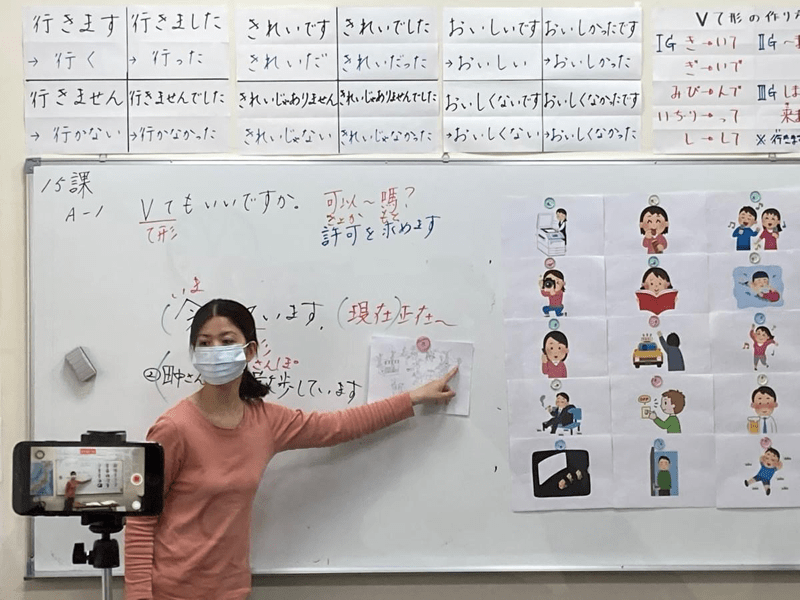 行きます 行きました
→ 行く → 行った
行きません 行きませんでした
→ 行かない → 行かなかった
きれいです きれいでした
きれいだ きれいだった
きれいじゃありません きれいじゃありませんでした
きれいじゃない きれいじゃなかった
おいしいです おいしかったです
→ おいしい → おいしかった
おいしくないです おいしくなかったです
→ おいしくない → おいしくなかった
Vて形の作り
IG き→いて IIG
ぎ→いで
みび→んで IIIG
いちり→って
し→して ※行きま
15課
A-1 Vてもいいですか。 可以〜嗎?
て形 許可を求めます
きょか もと
いま
(今 います。(現在)正在〜
さんぽ
② 田中さん 散歩しています